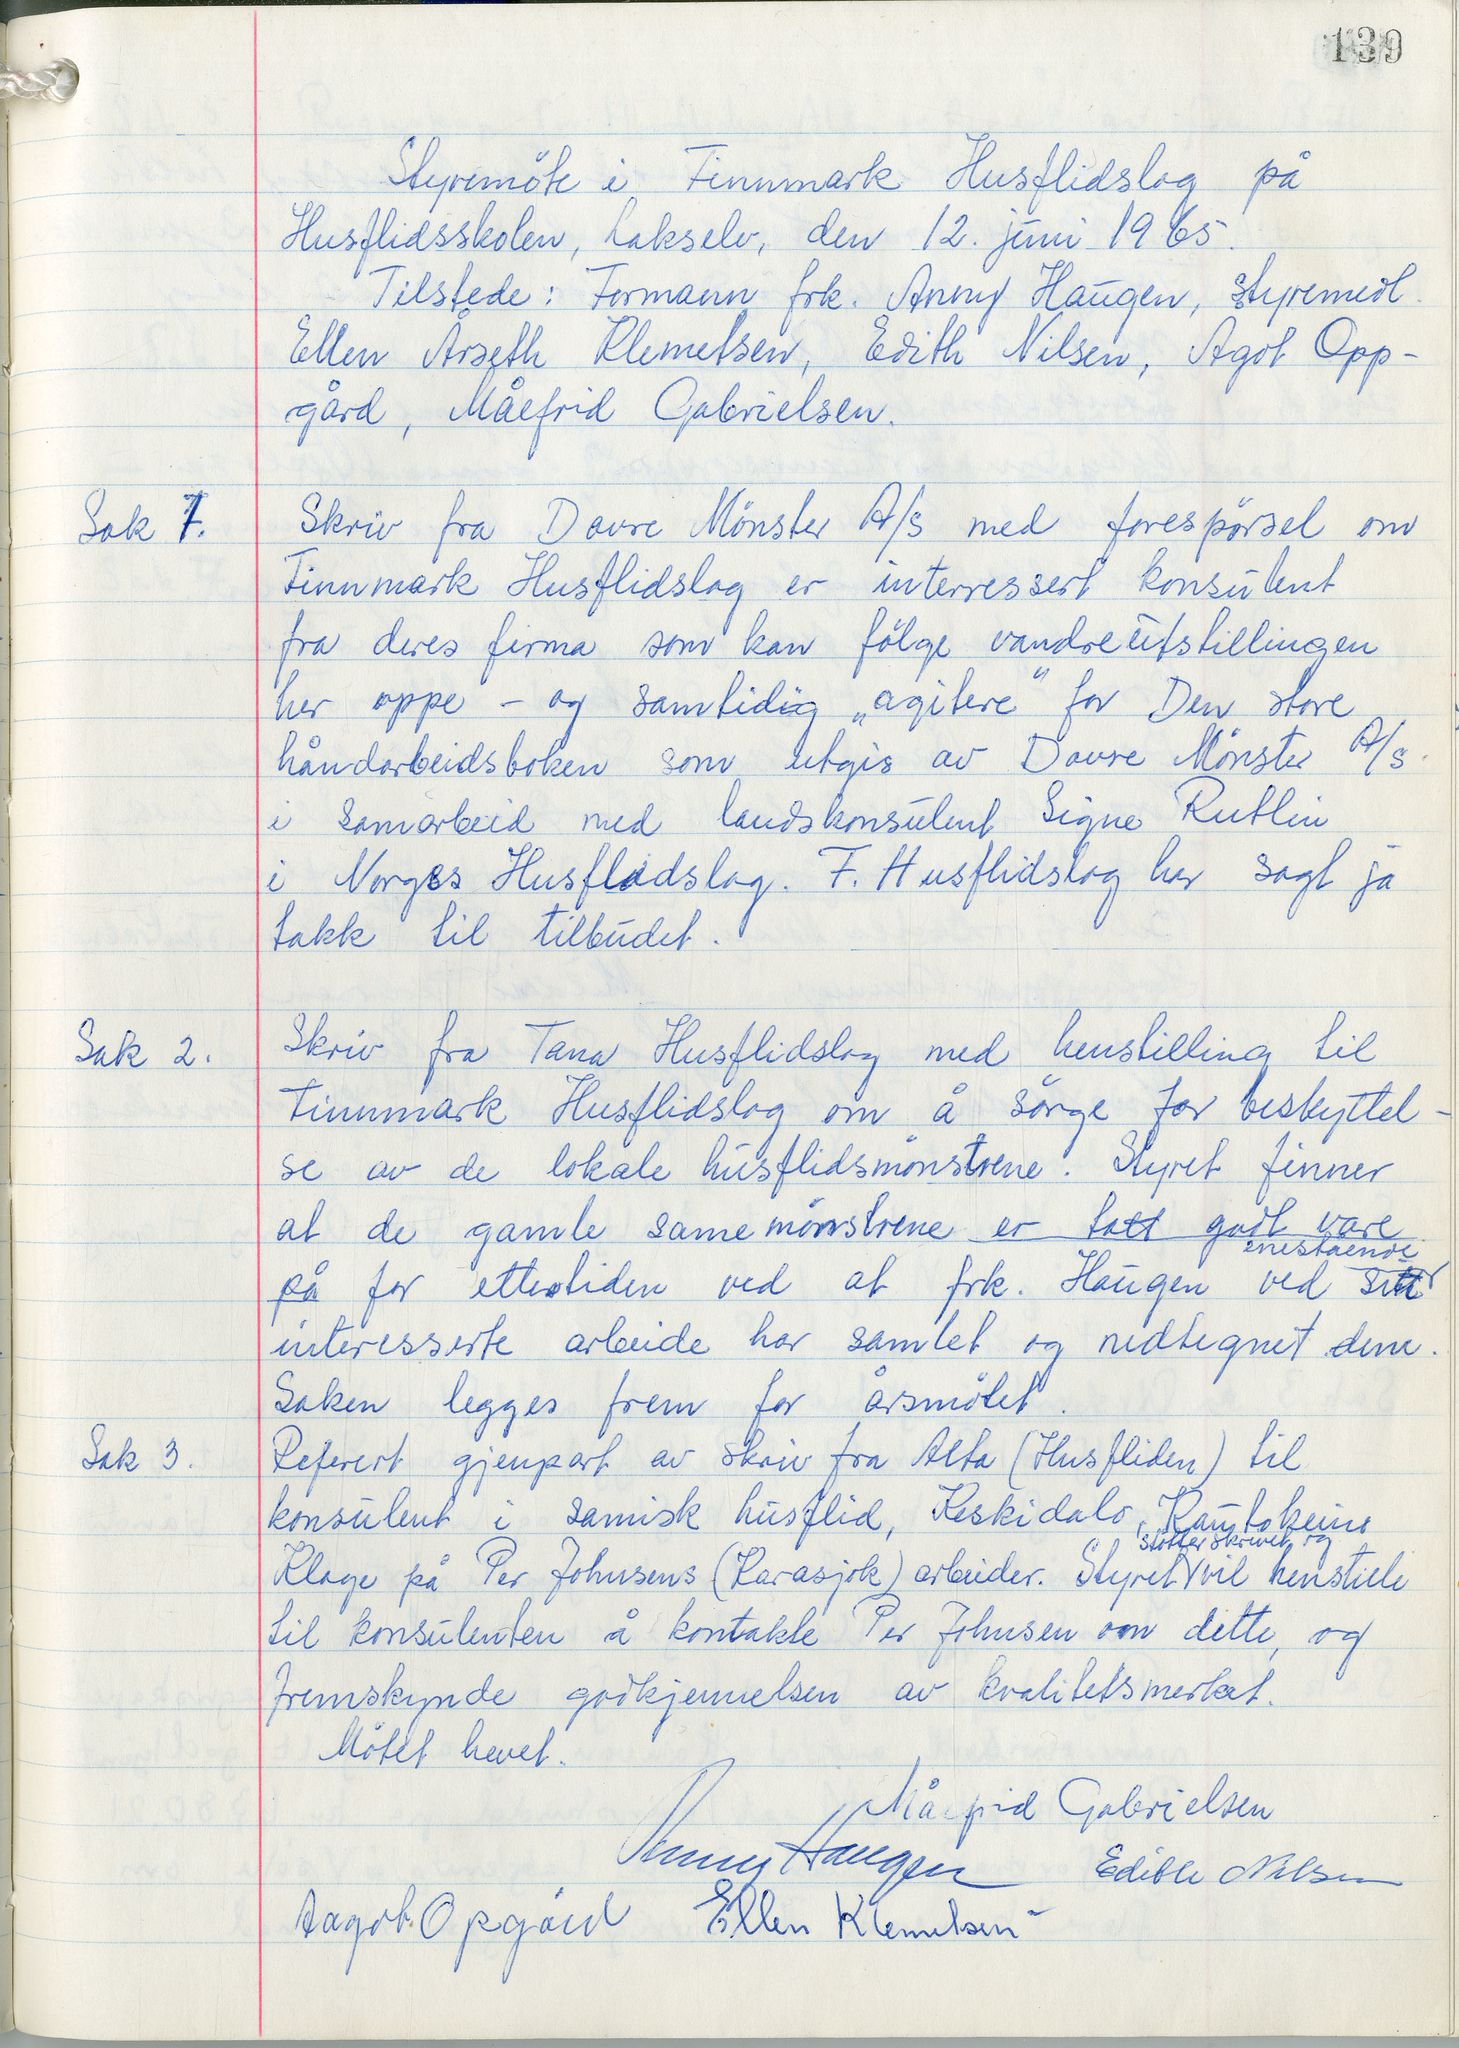 139
Styremöte i Finnmark Husflidslag på
Husflidsskolen, Lakselv, den 12. juni 1965.
Tilstede: Formann frk. Anny Haugen, styremedl.
Ellen Årseth Klemetsen, Edith Nilsen, Agot Opp-
gård, Målfrid Gabrielsen.
Sak 1. Skriv fra Dovre Mönster A/S med forespörsel om
Finnmark Husflidslag er interressert konsulent
fra deres firma som kan fölge vandreutstillingen
her oppe - og samtidig „agitere" for Den store
håndarbeidsboken som utgis av Dovre Mönster A/S.
i samarbeid med landskonsulent Signe Rutlin
i Norges Husflidslag. F. Husflidslag har sagt ja
takk til tilbudet.
Sak 2. Skriv fra Tana Husflidslag med henstilling til
Finnmark Husflidslag om å sörge for beskyttel-
se av de lokale husflidsmönstrene. Styret finner
at de gamle samemönstrene er tatt godt vare
på for ettertiden ved at frk. Haugen ved sitt enestående
interesserte arbeide har samlet og nedtegnet dem.
Saken legges frem for årsmötet.
Sak 3. Referert gjenpart av skriv fra Alta (Husfliden) til
konsulent i samisk husflid, Keskidalo, Kautokeino
Klage på Per Johnsens (Karasjok) arbeider. Styret støtter skrivet og vil henstille
til konsulenten å kontakte Per Johnsen om dette, og
fremskynde godkjennelsen av kvalitetsmerket.
Mötet hevet.
Målfrid Gabrielsen
Anny Haugen Edith Nilsen
Aagot Opgård Ellen Klemetsen